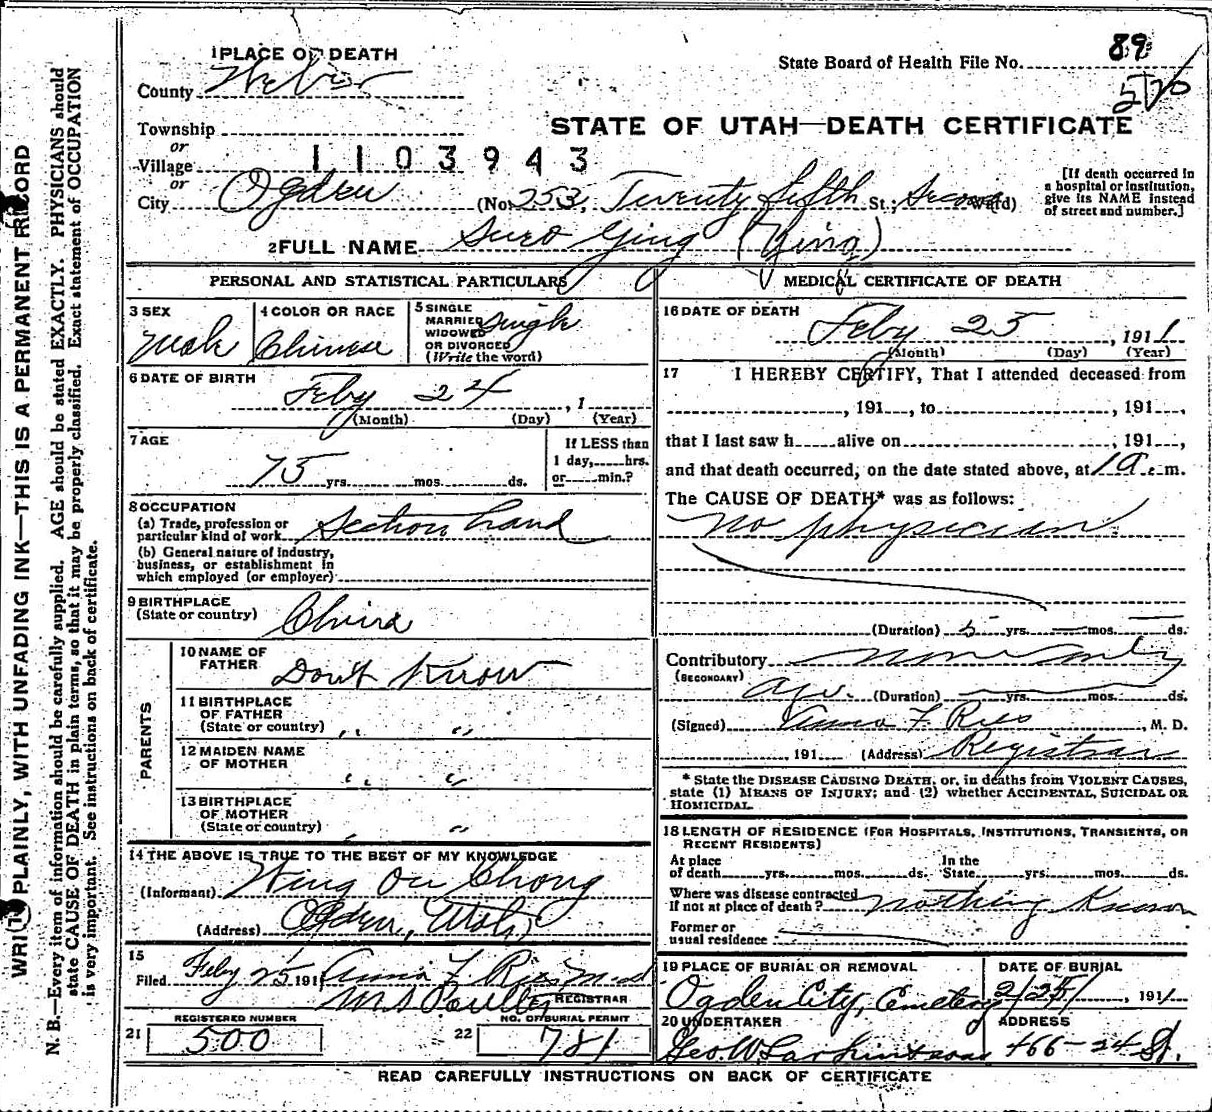 1 PLACE OF DEATH
County Weber
State Board of Health File No. 89
570
Township
or
Village
1103943
or
City Ogden (No. 253, Twenty fifth St.; Second Ward)
STATE OF UTAH—DEATH CERTIFICATE
[If death occurred in
a hospital or institution,
give its NAME instead
of street and number.]
2 FULL NAME Ging (Ying)
PERSONAL AND STATISTICAL PARTICULARS
3 SEX Male
4 COLOR OR RACE Chinese
5 SINGLE
MARRIED
WIDOWED
OR DIVORCED
(Write the word) Single
6 DATE OF BIRTH
Feby 24, 1
(Month) (Day) (Year)
7 AGE
75 yrs. mos. ds.
If LESS than
1 day, hrs.
or min.?
8 OCCUPATION
(a) Trade, profession or
particular kind of work Section hand
(b) General nature of industry,
business, or establishment in
which employed (or employer)
9 BIRTHPLACE
(State or country) China
PARENTS
10 NAME OF
FATHER Don't Know
11 BIRTHPLACE
OF FATHER
(State or country) " "
12 MAIDEN NAME
OF MOTHER " "
13 BIRTHPLACE
OF MOTHER
(State or country) " "
14 THE ABOVE IS TRUE TO THE BEST OF MY KNOWLEDGE
(Informant) Wing On Chong
(Address) Ogden, Utah
15
Filed Feby 25 191 Anna F. Ries M.D.
REGISTRAR
REGISTERED NUMBER
21 500
NO. OF BURIAL PERMIT
22 781
MEDICAL CERTIFICATE OF DEATH
16 DATE OF DEATH
Feby 25, 1911
(Month) (Day) (Year)
17 I HEREBY CERTIFY, That I attended deceased from
, 191 , to , 191 ,
that I last saw h alive on , 191 ,
and that death occurred, on the date stated above, at 1 a.m.
The CAUSE OF DEATH* was as follows:
No physician
(Duration) 5 yrs. — mos. — ds.
Contributory
(SECONDARY)
age. (Duration) yrs. mos. ds.
(Signed) Anna F. Ries, M. D.
, 191 (Address) Registrar
* State the DISEASE CAUSING DEATH, or, in deaths from VIOLENT CAUSES,
state (1) MEANS OF INJURY; and (2) whether ACCIDENTAL, SUICIDAL OR
HOMICIDAL.
18 LENGTH OF RESIDENCE (FOR HOSPITALS, INSTITUTIONS, TRANSIENTS, OR
RECENT RESIDENTS)
At place
of death yrs. mos. ds.
In the
State yrs. mos. ds.
Where was disease contracted
If not at place of death? Nothing Known
Former or
usual residence
19 PLACE OF BURIAL OR REMOVAL
Ogden City, Cemetery
DATE OF BURIAL
2/25/, 1911
20 UNDERTAKER
Geo. W. Larkin & sons
ADDRESS
466-24 St.
READ CAREFULLY INSTRUCTIONS ON BACK OF CERTIFICATE
PLAINLY, WITH UNFADING INK—THIS IS A PERMANENT RECORD
N. B.—Every item of information should be carefully supplied. AGE should be stated EXACTLY. PHYSICIANS should
state CAUSE OF DEATH in plain terms, so that it may be properly classified. Exact statement of OCCUPATION
is very important. See instructions on back of certificate.